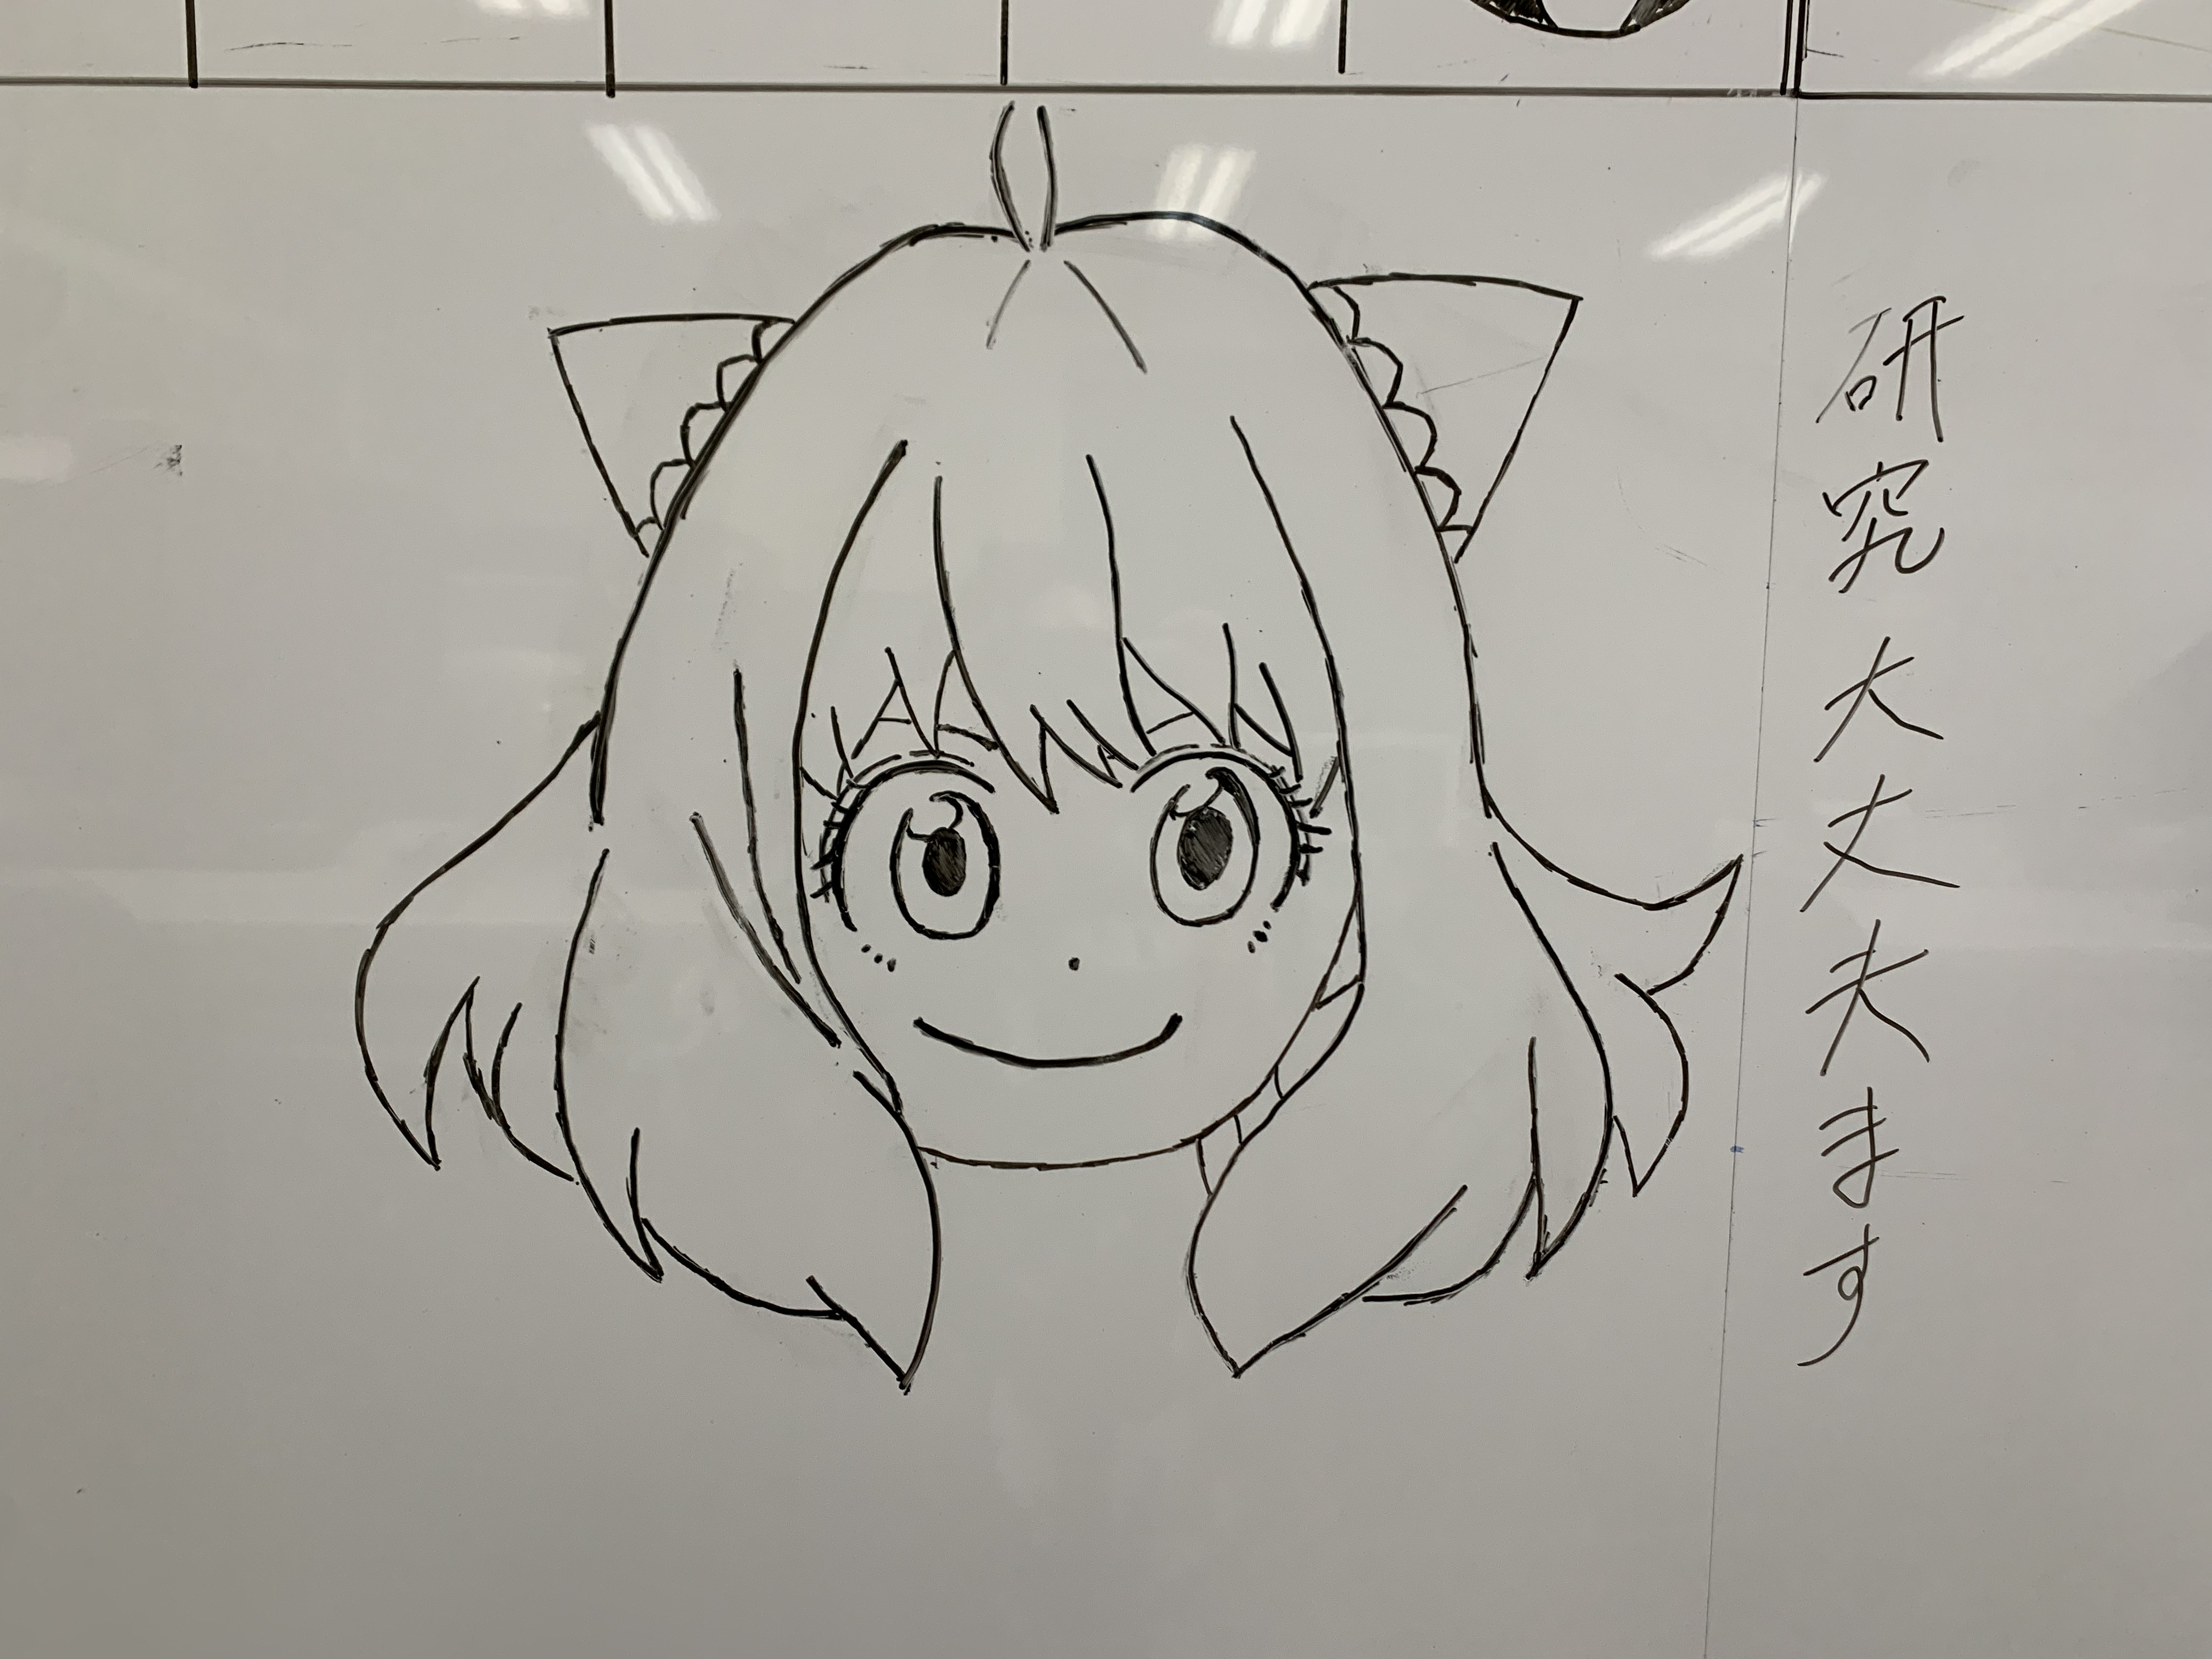 研究大丈夫ます